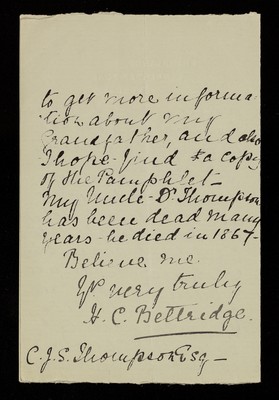 to get more informa
tion about my
Grandfather, and also
I hope find a copy
of the Pamphlet_
My Uncle Dr Thompson
has been dead many
years - he died in 1867-
Believe me
Yrs very truly
H. C. Bettridge.
C. J. S. Thompson Esq_